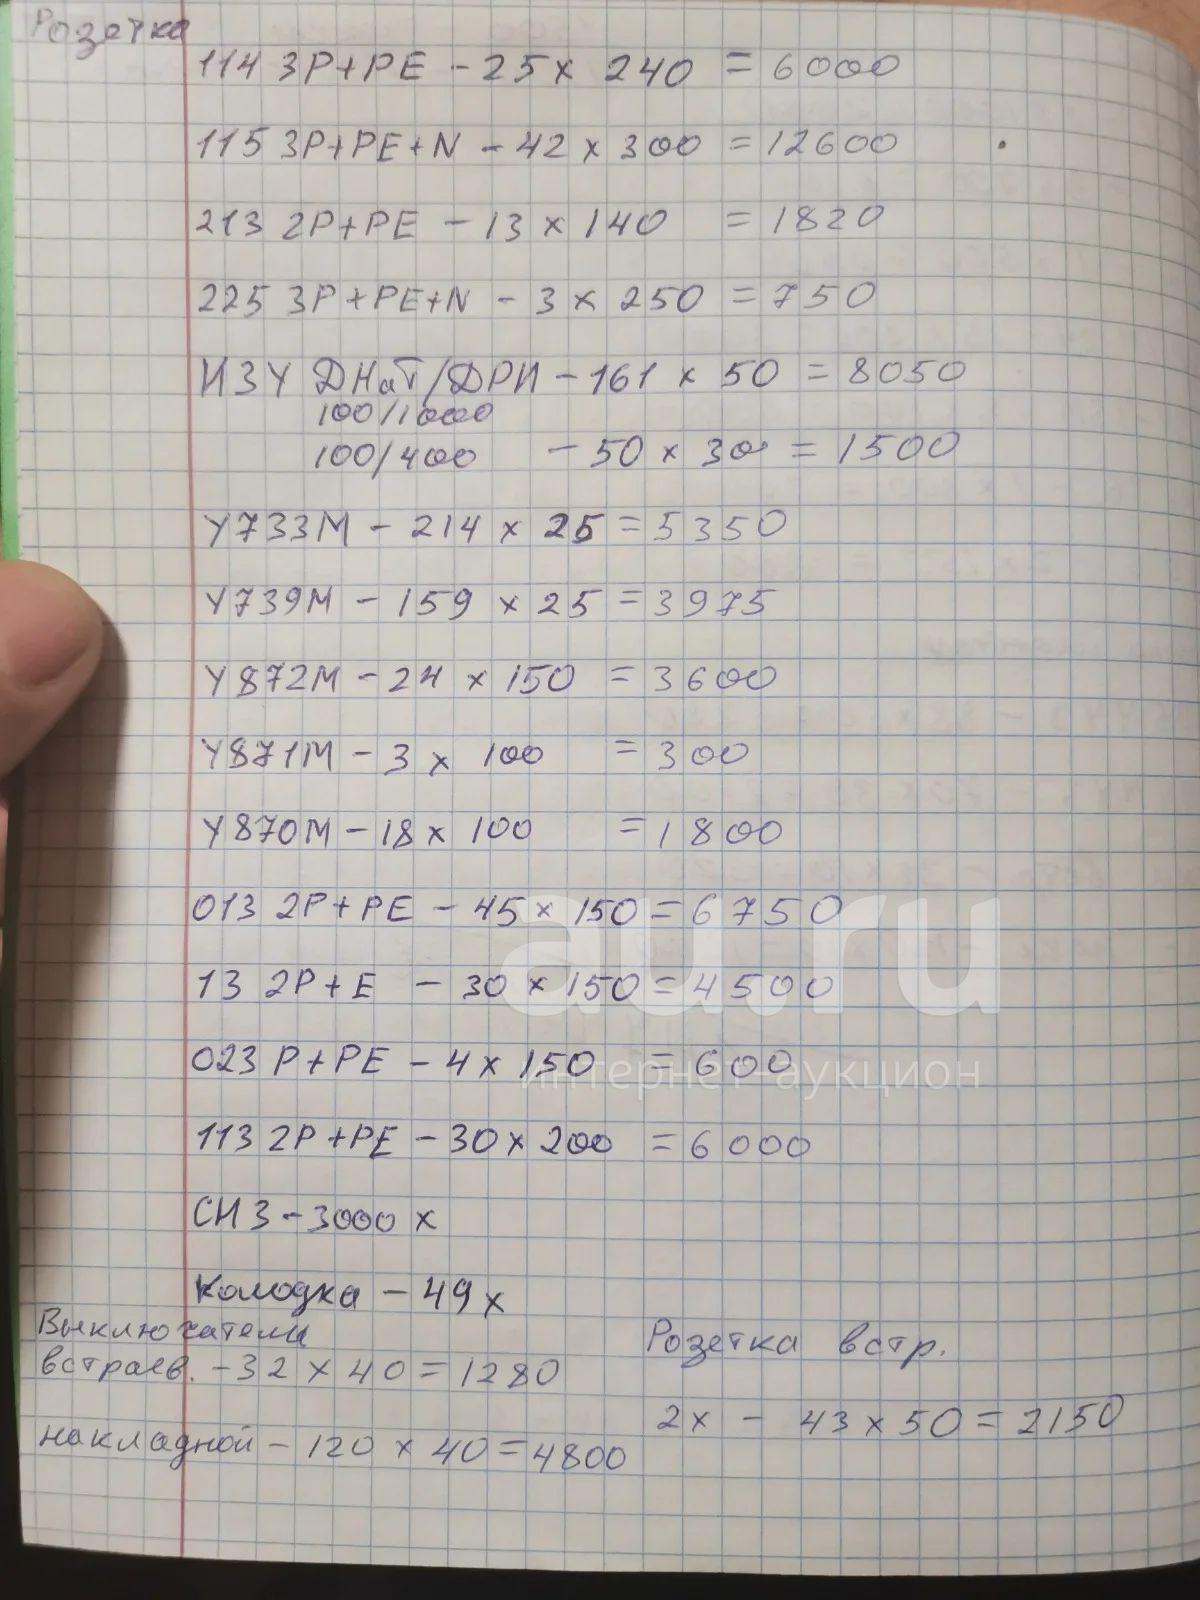 Розетка
114 3P+PE - 25 x 240 = 6000
115 3P+PE+N - 42 x 300 = 12600
213 2P+PE - 13 x 140 = 1820
225 3P+PE+N - 3 x 250 = 750
ИЗУ ДНаТ/ДРИ - 161 x 50 = 8050
100/1000
100/400 - 50 x 30 = 1500
У733М - 214 x 25 = 5350
У739М - 159 x 25 = 3975
У872М - 24 x 150 = 3600
У871М - 3 x 100 = 300
У870М - 18 x 100 = 1800
013 2P+PE - 45 x 150 = 6750
13 2P+E - 30 x 150 = 4500
023 P+PE - 4 x 150 = 600
113 2P+PE - 30 x 200 = 6000
СИЗ - 3000 x
Колодка - 49 x
Выключатели
встраев. - 32 x 40 = 1280
накладной - 120 x 40 = 4800
Розетка встр.
2x - 43 x 50 = 2150
au.ru
интернет-аукцион